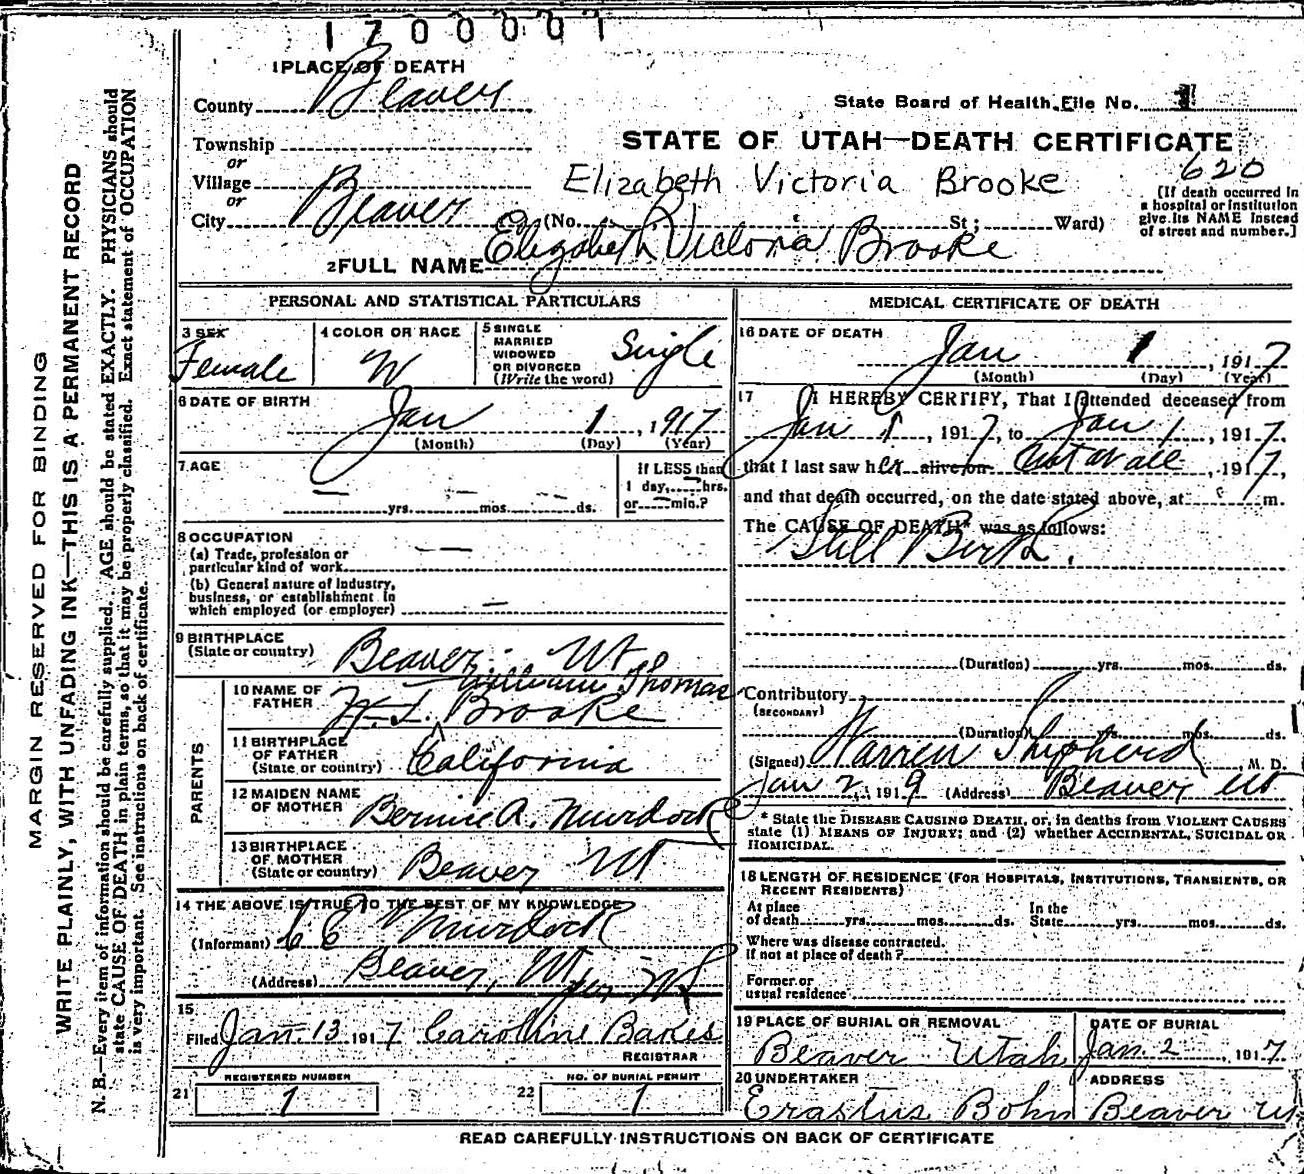 1700001
1 PLACE OF DEATH
County Beaver
State Board of Health File No. 1
Township
or
Village
or
City Beaver (No. St; Ward)
STATE OF UTAH—DEATH CERTIFICATE
620
Elizabeth Victoria Brooke
(If death occurred in
a hospital or institution
give its NAME instead
of street and number.]
2 FULL NAME Elizabeth Victoria Brooke
PERSONAL AND STATISTICAL PARTICULARS
3 SEX
Female
4 COLOR OR RACE
W
5 SINGLE
MARRIED
WIDOWED
OR DIVORCED
(Write the word)
Single
6 DATE OF BIRTH
Jan 1, 1917
(Month) (Day) (Year)
7 AGE
— yrs. — mos. — ds.
If LESS than
1 day, — hrs.
or — min.?
8 OCCUPATION
(a) Trade, profession or
particular kind of work —
(b) General nature of Industry,
business, or establishment in
which employed (or employer) —
9 BIRTHPLACE
(State or country) Beaver Ut
PARENTS
William Thomas
10 NAME OF
FATHER W. T. Brooke
11 BIRTHPLACE
OF FATHER
(State or country) California
12 MAIDEN NAME
OF MOTHER Bernice A. Murdock
13 BIRTHPLACE
OF MOTHER
(State or country) Beaver Ut
14 THE ABOVE IS TRUE TO THE BEST OF MY KNOWLEDGE
(Informant) Murdock
(Address) Beaver, Ut
15
Filed Jan. 13 1917 Caroline Bakes
REGISTRAR
21 REGISTERED NUMBER
1
22 NO. OF BURIAL PERMIT
1
MEDICAL CERTIFICATE OF DEATH
16 DATE OF DEATH
Jan 1, 1917
(Month) (Day) (Year)
17 I HEREBY CERTIFY, That I attended deceased from
Jan 1, 1917, to Jan 1, 1917,
that I last saw her alive on not at all, 1917,
and that death occurred, on the date stated above, at m.
The CAUSE OF DEATH* was as follows:
Still Birth.
(Duration) yrs. mos. ds.
Contributory
(SECONDARY)
(Duration) yrs. mos. ds.
(Signed) Warren Shepherd, M. D.
Jan 2, 1919 (Address) Beaver Ut
* State the DISEASE CAUSING DEATH, or, in deaths from VIOLENT CAUSES
state (1) MEANS OF INJURY; and (2) whether ACCIDENTAL, SUICIDAL OR
HOMICIDAL.
18 LENGTH OF RESIDENCE (FOR HOSPITALS, INSTITUTIONS, TRANSIENTS, OR
RECENT RESIDENTS)
At place In the
of death yrs. mos. ds. State yrs. mos. ds.
Where was disease contracted.
If not at place of death?
Former or
usual residence
19 PLACE OF BURIAL OR REMOVAL
Beaver Utah
DATE OF BURIAL
Jan. 2, 1917
20 UNDERTAKER
Erastus Bohn
ADDRESS
Beaver Ut
READ CAREFULLY INSTRUCTIONS ON BACK OF CERTIFICATE
MARGIN RESERVED FOR BINDING
WRITE PLAINLY, WITH UNFADING INK—THIS IS A PERMANENT RECORD
N. B.—Every item of information should be carefully supplied. AGE should be stated EXACTLY. PHYSICIANS should
state CAUSE OF DEATH in plain terms, so that it may be properly classified. Exact statement of OCCUPATION
is very important. See instructions on back of certificate.